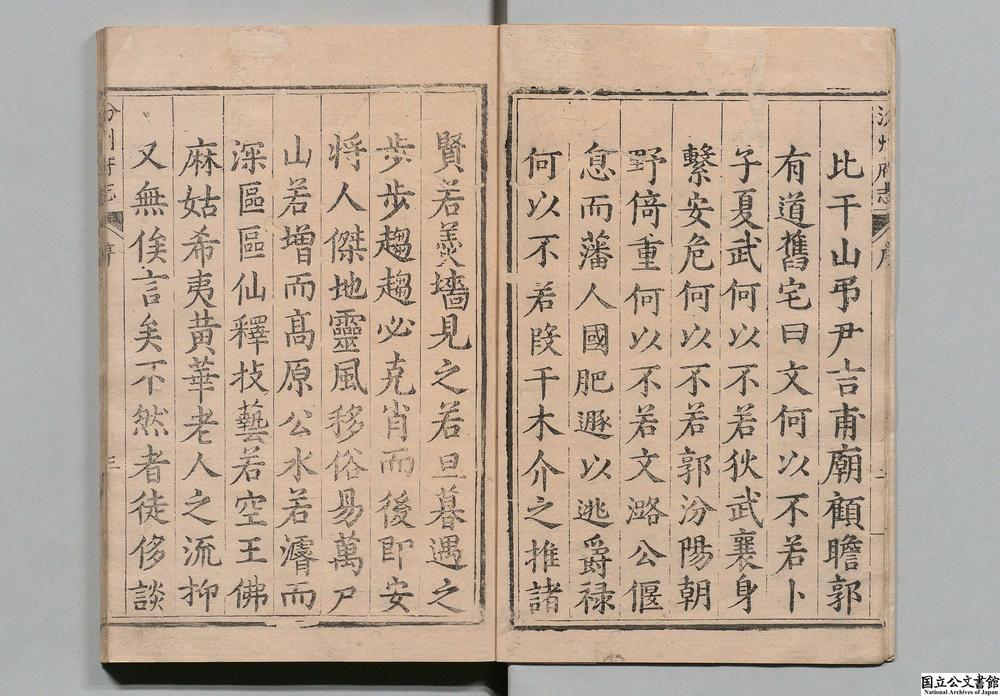 汾州府志 序
比干山弔尹吉甫廟顧瞻郭
有道舊宅曰文何以不若卜
子夏武何以不若狄武襄身
繫安危何以不若郭汾陽朝
野倚重何以不若文潞公偃
息而藩人國肥遯以逃爵祿
何以不若段干木介之推諸
賢若羮墻見之若旦暮遇之
步步趨趨必克肖而後即安
将人傑地靈風移俗易萬户
山若增而髙原公水若濬而
深區區仙釋技藝若空王佛
麻姑希夷黄華老人之流抑
又無俟言矣不然者徒侈談
汾州府志 序 三
国立公文書館
National Archives of Japan